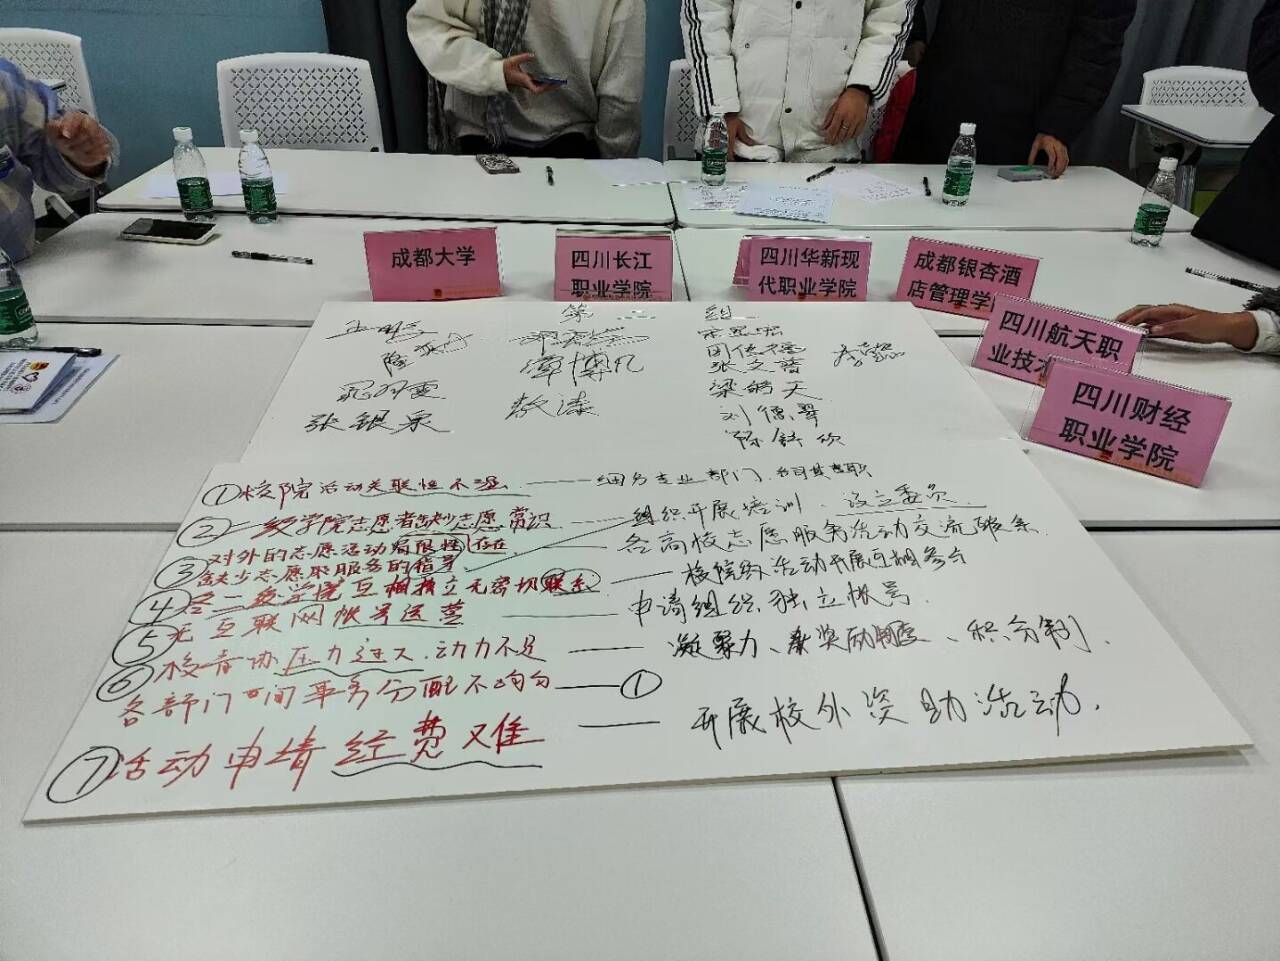 成都大学
四川长江
职业学院
四川华新现
代职业学院
成都银杏酒
店管理学
四川航天职
业技术
四川财经
职业学院
第 二 组
谭博凡
张文
梁皓天
张银泉
敖漆
刘德翠
①校院活动关联性不强 —— 细分专业部门,各司其职
②一级学院志愿者缺少志愿常识 组织开展培训、设立委员
对外的志愿活动局限性存在 —— 各高校志愿服务活动交流联系
③缺少志愿服务的指导
④各二级学院互相独立无密切联系 —— 校院级活动开展互相参与
⑤无互联网帐号运营 —— 申请组织独立帐号.
⑥校青协压力过大,动力不足 —— 凝聚力、奖励制度、积分制.
各部门之间事务分配不均匀 —— ①
⑦活动申请经费难 —— 开展校外资助活动.